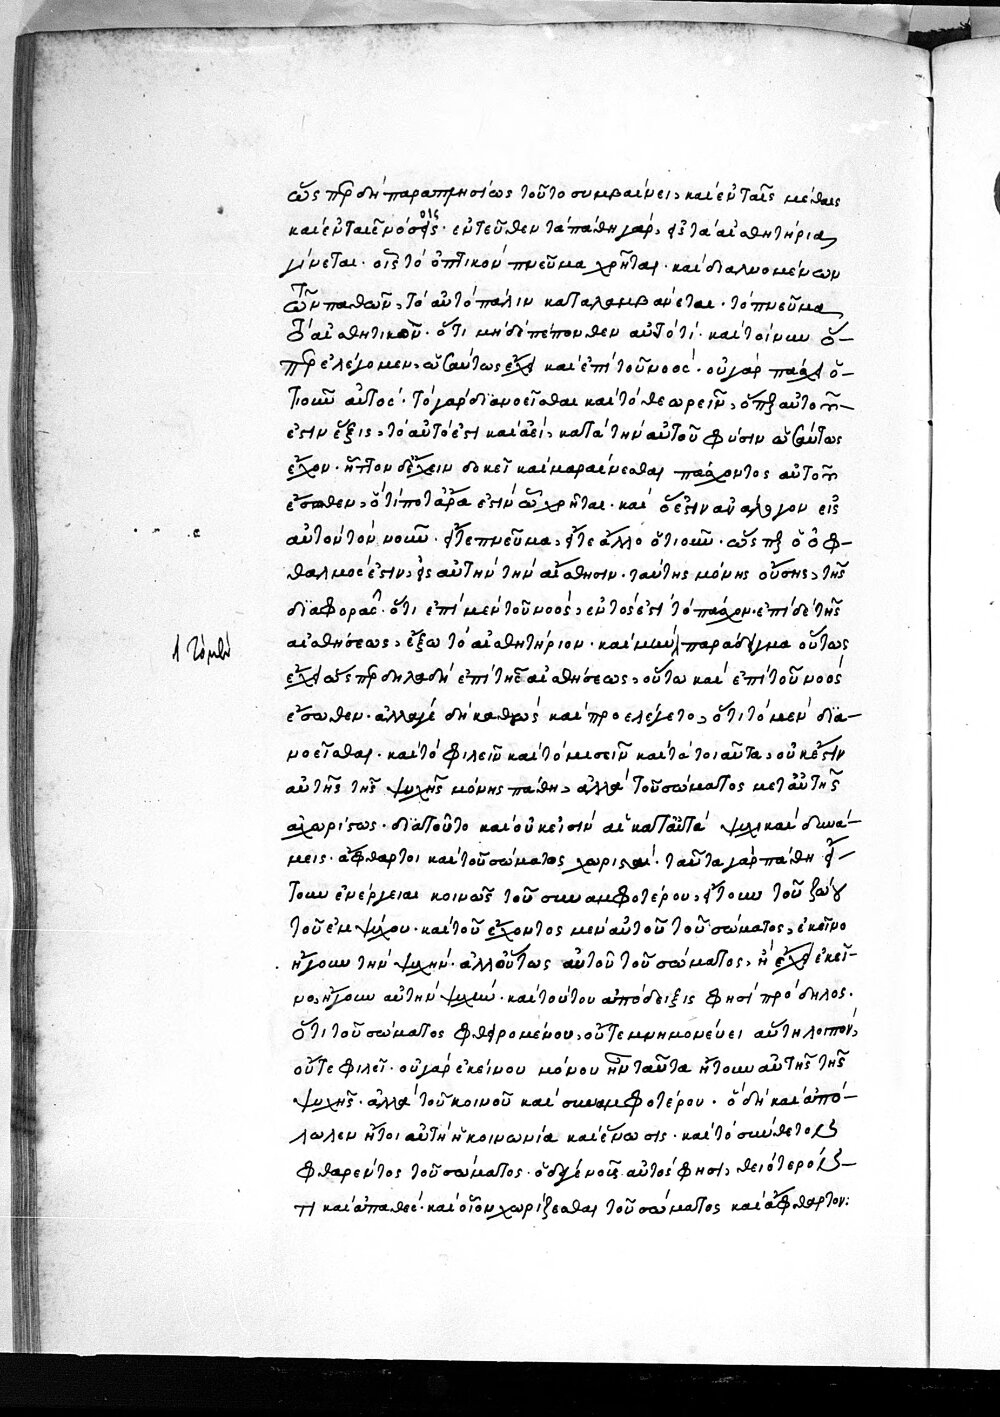 ὥσπερ δὴ παραπλησίως τοῦτο συμβαίνει, καὶ ἐν ταῖς μέθαις
καὶ ἐν ταῖς νόσοις· ἐντεῦθεν τὰ πάθη γὰρ, εἰς τὰ αἰσθητήρια
γίνεται· οἷς τὸ ὀπτικὸν πνεῦμα χρῆται· καὶ διαλυομένων
τῶν παθῶν, τὸ αὐτὸ πάλιν καταλαμβάνεται· τὸ πνεῦμα
τὸ αἰσθητικὸν· ὅτι μηδὲ πέπονθεν αὐτό τι· καὶ τοίνυν ὅ-
περ ἐλέγομεν, ὡσαύτως ἔχει καὶ ἐπὶ τοῦ νοός· οὐ γὰρ πάσχει ὁ-
τιοῦν αὐτός· τὸ γὰρ διανοεῖσθαι καὶ τὸ θεωρεῖν, ὅπερ αὐτοῦ
ἐστιν ἕξις, τὸ αὐτό ἐστι καὶ ἀεὶ, κατὰ τὴν αὐτοῦ φύσιν ὡσαύτως
ἔχον· ἧττον δ' ἔχειν δοκεῖ καὶ μαραίνεσθαι πάσχοντος αὐτοῦ
ἔσωθεν, ὅ τί ποτ' ἄρα ἐστὶν ᾧ χρῆται· καὶ ὅ ἐστιν ἀνάλογον εἰς
αὐτὸν τὸν νοῦν· εἴτε πνεῦμα, εἴτε ἄλλο ὁτιοῦν· ὥσπερ ὁ ὀφ-
θαλμός ἐστιν, εἰς αὐτὴν τὴν αἴσθησιν· ταύτης μόνης οὔσης, τῆς
διαφορᾶς· ὅτι ἐπὶ μὲν τοῦ νοός, ἐντός ἐστι τὸ πάσχον· ἐπὶ δὲ τῆς
αἰσθήσεως, ἔξω τὸ αἰσθητήριον· καὶ μὴν παράδειγμα οὕτως
ἔχει ὥσπερ δηλαδὴ ἐπὶ τῆς αἰσθήσεως, οὕτω καὶ ἐπὶ τοῦ νοός
ἔσωθεν· ἀλλά γε δὴ καθὼς καὶ προελέγετο, ὅτι τὸ μὲν δια-
νοεῖσθαι· καὶ τὸ φιλεῖν καὶ τὸ μισεῖν καὶ τὰ τοιαῦτα, οὐκ ἔστιν
αὐτῆς τῆς ψυχῆς μόνης πάθη, ἀλλὰ τοῦ σώματος μετ' αὐτῆς
ἀχωρίστως· διὰ τοῦτο καὶ οὐκ εἰσὶν αἱ κατὰ ταῦτα ψυχικαὶ δυνά-
μεις· ἄφθαρτοι καὶ τοῦ σώματος χωρισταί· ταῦτα γὰρ πάθη εἴ-
τουν ἐνέργειαι κοινῶς τοῦ συναμφοτέρου, εἴτουν τοῦ ζώου
τοῦ ἐμψύχου· καὶ τοῦ ἔχοντος μὲν αὐτοῦ τοῦ σώματος, ἐκεῖνο
ἤγουν τὴν ψυχήν· ἀλλ' οὕτως αὐτοῦ τοῦ σώματος, ἢ ἔχει ἐκεῖ-
νο, ἤγουν αὐτὴν ψυχήν· καὶ τούτου ἀπόδειξις φησὶ πρόδηλος·
ὅτι τοῦ σώματος φθειρομένου, οὔτε μνημονεύει αὕτη λοιπόν,
οὔτε φιλεῖ· οὐ γὰρ ἐκείνου μόνου ἦν ταῦτα ἤτουν αὐτῆς τῆς
ψυχῆς· ἀλλὰ τοῦ κοινοῦ καὶ συναμφοτέρου· ὃ δὴ καὶ ἀπό-
λωλεν ἤτοι αὐτὴ ἡ κοινωνία καὶ ἕνωσις· καὶ τὸ σύνθετον
φθαρέντος τοῦ σώματος· ὁ δέ γε νοῦς αὐτός φησι, θειότερόν
τι καὶ ἀπαθές· καὶ οἷον χωρίζεσθαι τοῦ σώματος καὶ ἄφθαρτον: